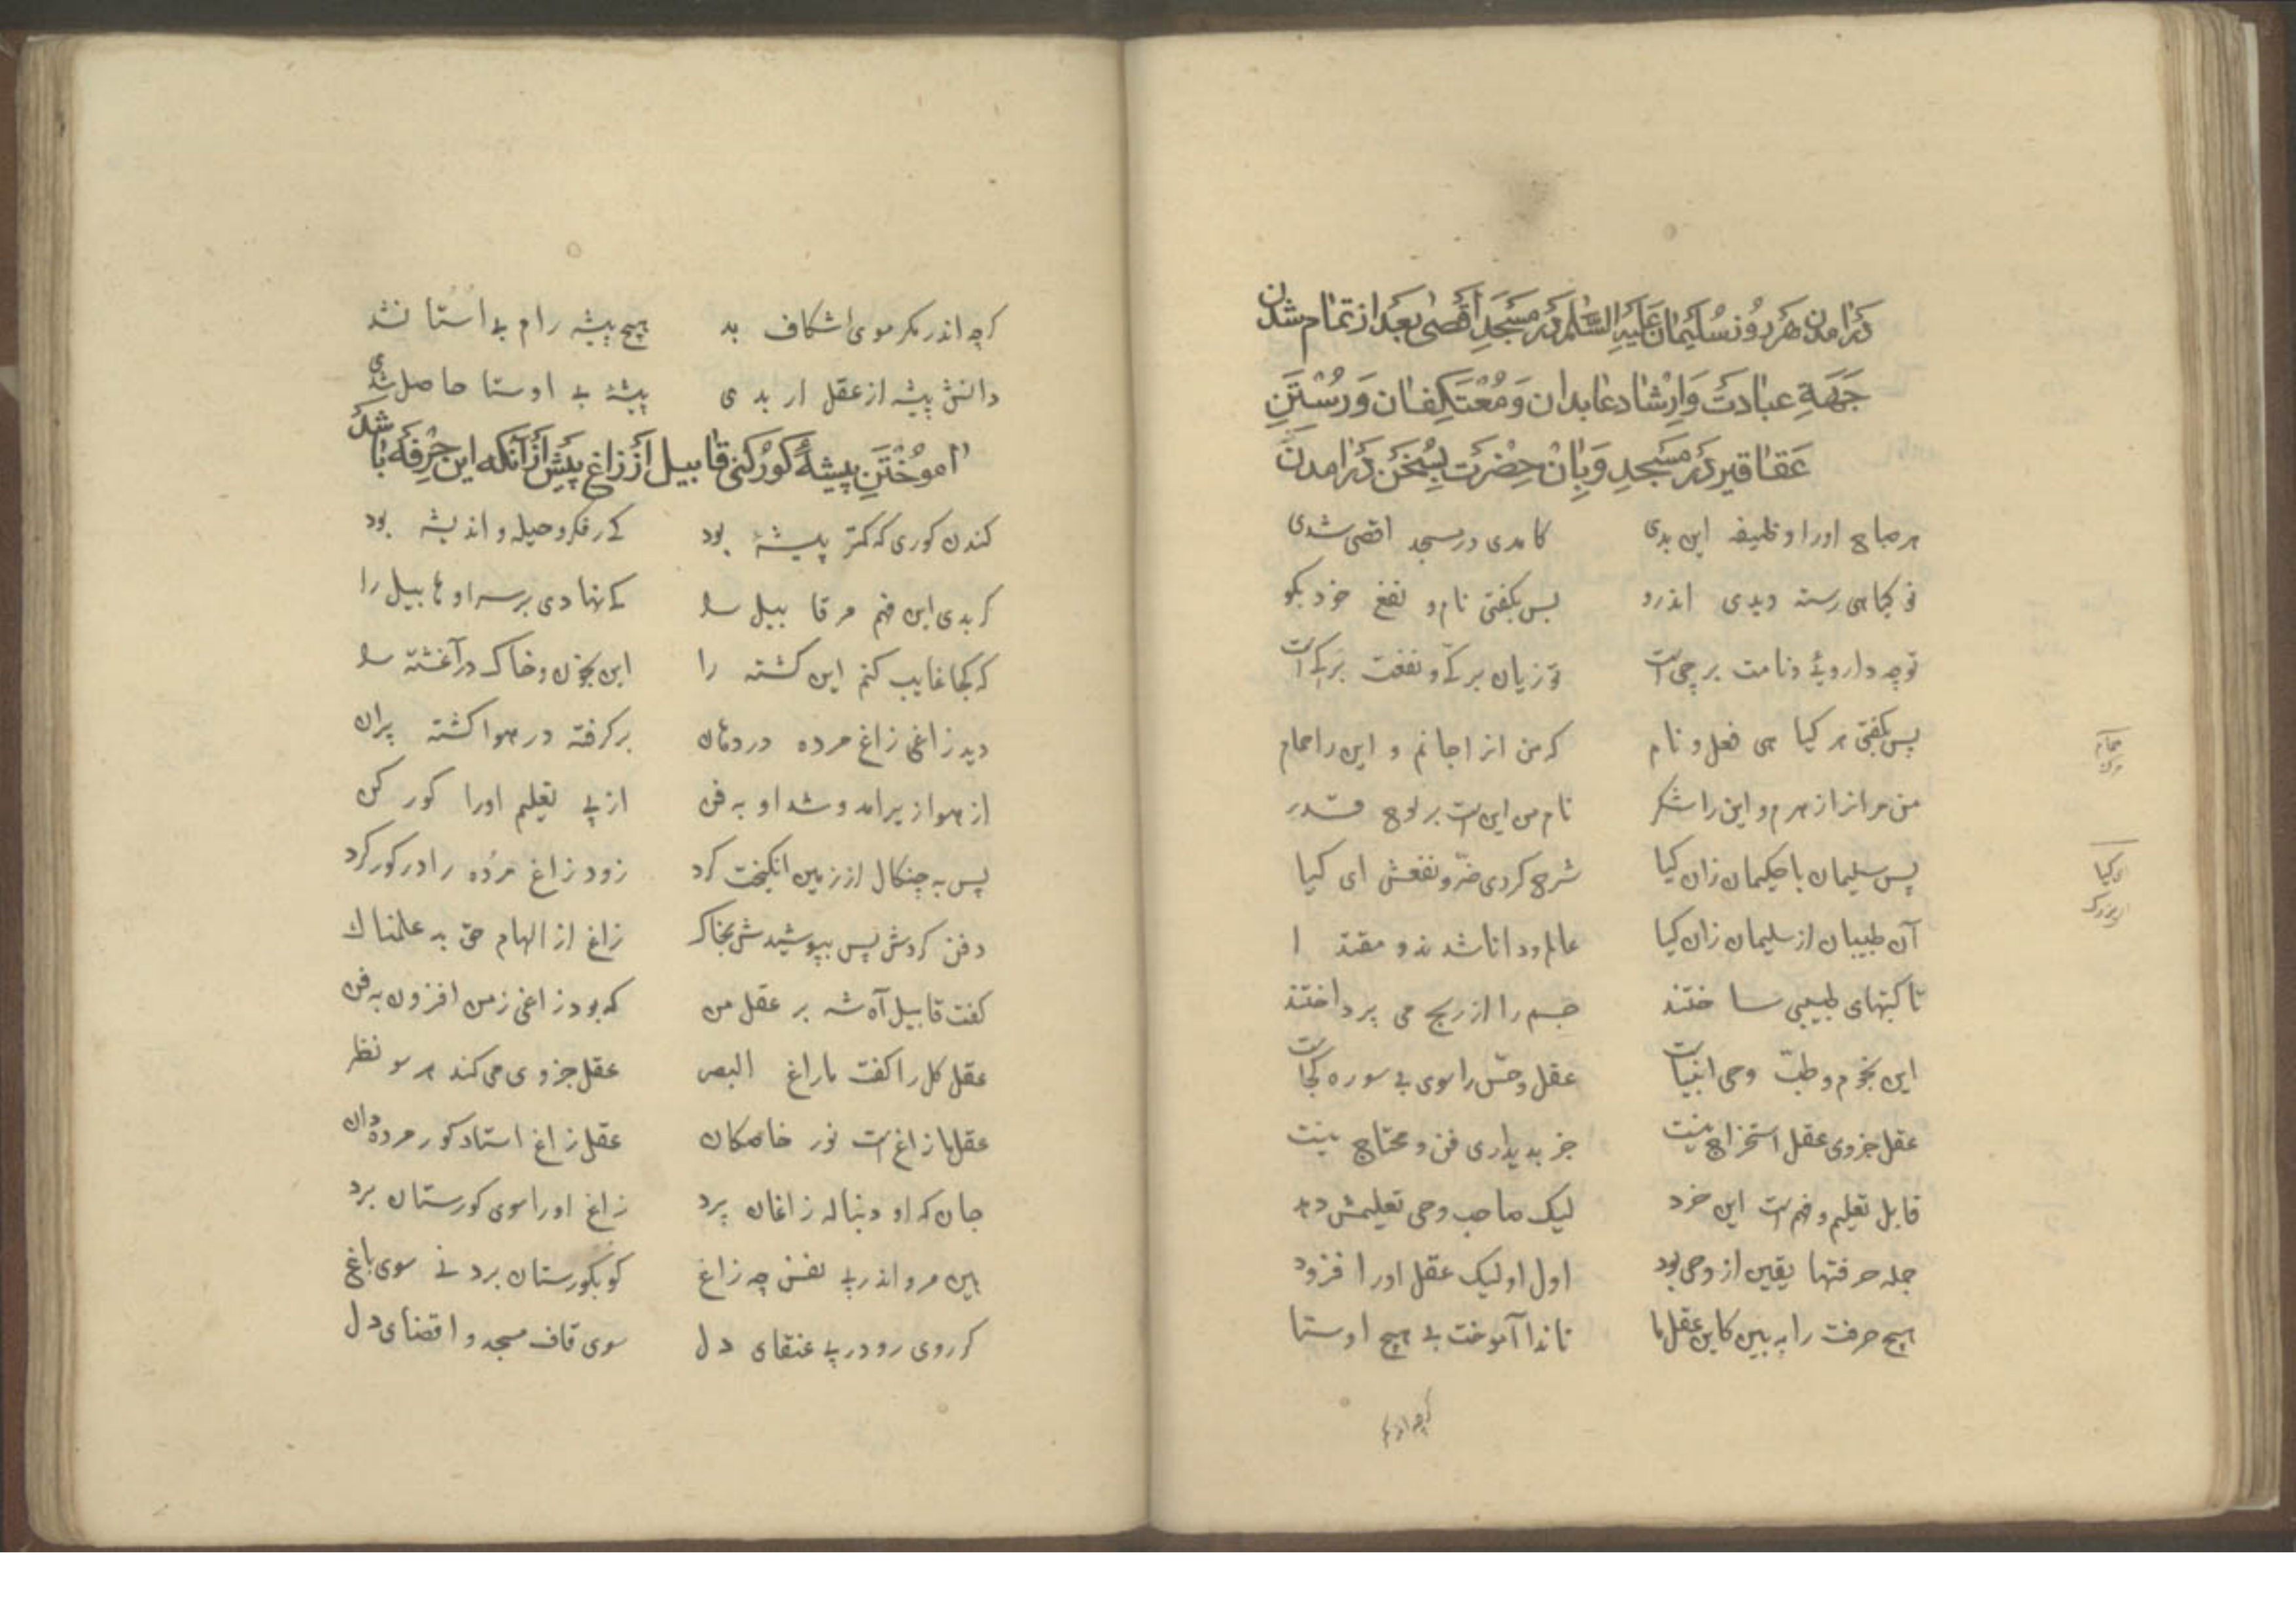 درامدن هر روز سلیمان علیه السلم در مسجد اقصی بعد از تمام شدن
جهة عبادت و ارشاد عابدان و معتکفان و رستن
عقاقیر در مسجد و بان حضرت بسخن درامدن
هر صباح اورا وظیفه این بدی کامدی در مسجد اقصی شدی
نو کیاهی رسته دیدی اندرو بس بکفتی نام و نفع خود بکو
تو چه دارویی و نامت بر چی است تو زیان بر که و نفعت بر کی است
پس بکفتی هر کیا هی فعل و نام که من انرا جانم و این را حمام
من مرانرا زهرم و این را شکر نام من این است بر لوح قدر
پس سلیمان با حکیمان زان کیا شرح کردی ضر و نفعش ای کیا
آن طبیبان از سلیمان زان کیا عالم و دانا شدند و مقتد ا
تا کتبهای طبیبی سا ختند جسم را از رنج می پرداختند
این نجوم و طب وحی انبیاست عقل و حس را سوی بی سو ره کجاست
عقل جزوی عقل استخراج نیست جز پذیرای فن و محتاج نیست
قابل تعلیم و فهم است این خرد لیک صاحب وحی تعلیمش دهد
جمله حرفتها یقین از وحی بود اول او لیک عقل اورا فزود
هیچ حرفت را به بین کاین عقل ما تاند ا آموخت بی هیچ اوستا
کرچه اندر مکر
کرچه اندر مکر موی اشکاف بد هیچ پیشه رام بی استا نشد
دانش پیشه از عقل ار بدی پیشۀ بی اوستا حاصل شدی
اموختن پیشۀ کور کنی قابیل از زاغ پیش از آنکه این حرفه باشد
کندن کوری که کمتر پیشۀ بود کی ز فکر و حیله و اندیشه بود
کر بدی این فهم مر قا بیل را کی نهادی بر سر او هابیل را
که کجا غایب کنم این کشته را این بخون و خاک در آغشته را
دید زاغی زاغ مرده در دهان برکرفته در هوا کشته پران
از هوا زیر امد و شد او به فن از پی تعلیم اورا کور کن
پس به چنکال از زمین انکیخت کرد زود زاغ مرده را در کور کرد
دفن کردش پس بپوشیدش بخاک زاغ از الهام حق بد علمناک
کفت قابیل آه شه بر عقل من که بود زاغی ز من افزون به فن
عقل کل را کفت ما زاغ البصر عقل جزوی می کند هر سو نظر
عقل ما زاغ است نور خاصکان عقل زاغ استاد کور مرددان
جان که او دنباله زاغان پرد زاغ اورا سوی کورستان برد
هین مرو اندر پی نفس چه زاغ کو بکورستان برد نی سوی باغ
کر روی رو در پی عنقای دل سوی قاف مسجد و اقصای دل